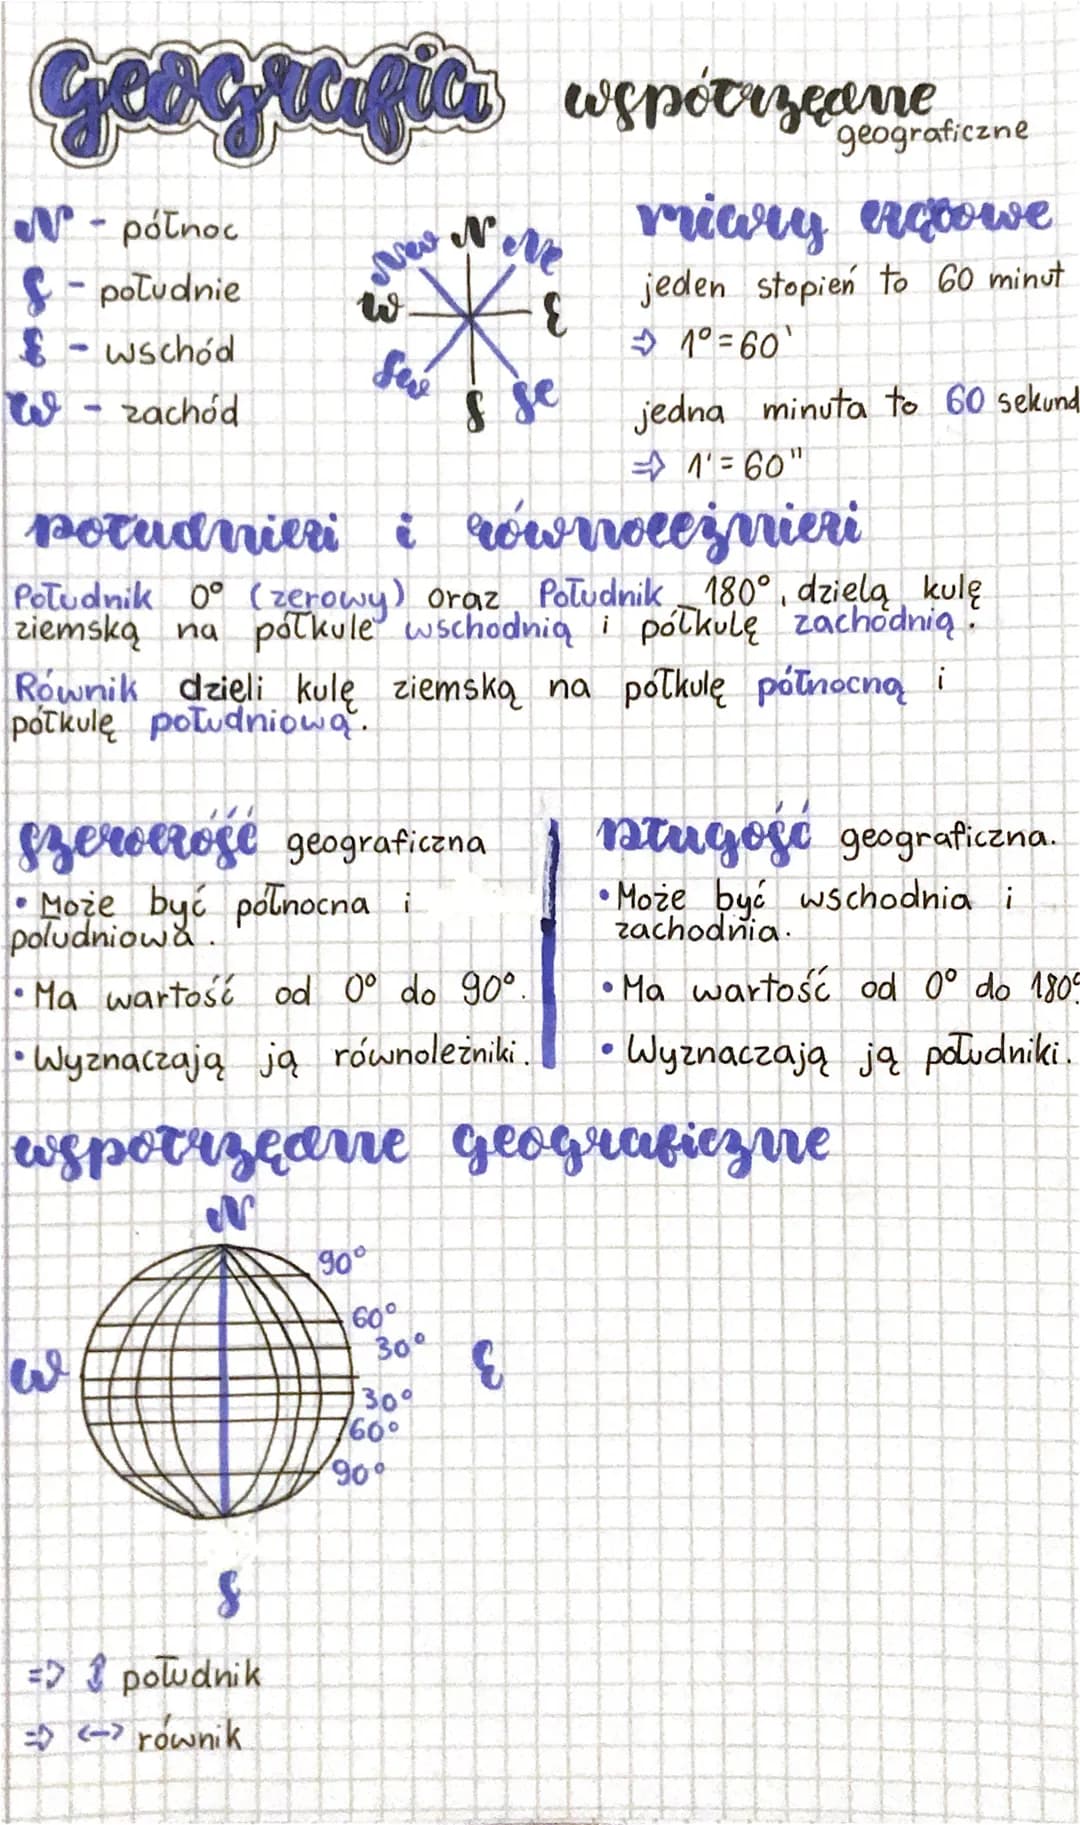 geografia
współrzędne
geograficzne
N - północ
S - południe
E - wschód
W - zachód
N
NW
NE
W
E
SW
SE
S
miary kątowe
jeden stopień to 60 minut
⇒ 1°=60'
jedna minuta to 60 sekund
⇒ 1'=60"
południki i równoleżniki
Południk 0° (zerowy) oraz Południk 180°, dzielą kulę
ziemską na półkulę wschodnią i półkulę zachodnią.
Równik dzieli kulę ziemską na półkulę północną i
półkulę południową.
szerokość geograficzna
• Może być północna i
południowa.
• Ma wartość od 0° do 90°.
• Wyznaczają ją równoleżniki.
Długość geograficzna.
• Może być wschodnia i
zachodnia.
• Ma wartość od 0° do 180°
• Wyznaczają ją południki.
współrzędne geograficzne
N
90°
60°
30°
W
E
30°
60°
90°
S
=> ↕ południk
=> <-> równik